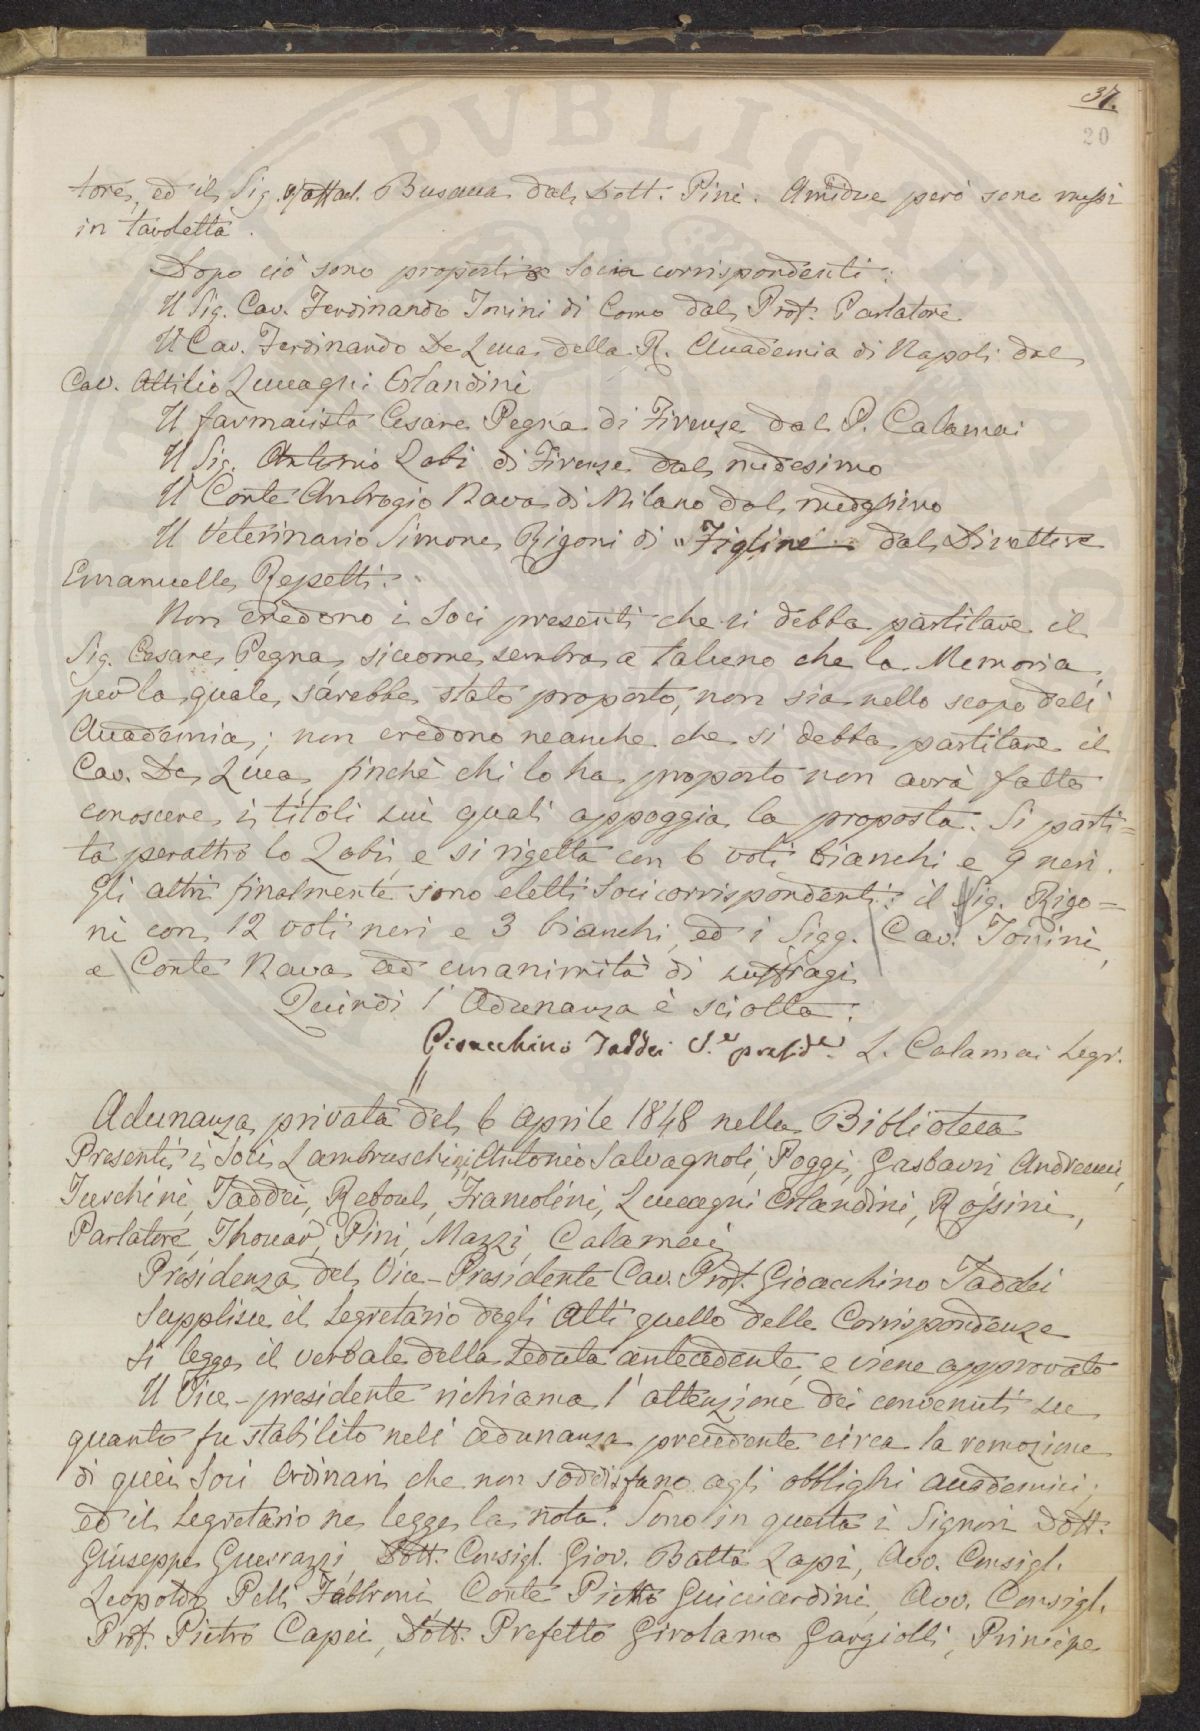 37.
20
tore, ed il Sig. Raffael. Busacca dal Dott. Pini. Amidue però sono messi
in tavoletta.
Dopo ciò sono proposti a Soci corrispondenti:
Il Sig. Cav. Ferdinando Tonini di Como dal Prof. Parlatore
Il Cav. Ferdinando De Luca della R. Accademia di Napoli dal
Cav. Attilio Zuccagni Orlandini
Il farmacista Cesare Pegna di Firenze dal P. Calamai
Il Sig. Antonio Zobi di Firenze dal medesimo
Il Conte Ambrogio Nava di Milano dal medesimo
Il Veterinario Simone Rigoni di Figline dal Direttore
Emanuelle Repetti.
Non credono i Soci presenti che si debba partitare il
Sig. Cesare Pegna, siccome sembra a taluno che la Memoria,
per la quale sarebbe stato proposto, non sia nello scopo dell'
Accademia; non credono neanche che si debba partitare il
Cav. De Luca, finchè chi lo ha proposto non avrà fatto
conoscere i titoli sui quali appoggia la proposta. Si parti=
ta peraltro lo Zobi, e si rigetta con 6 voti bianchi e 9 neri.
Gli altri finalmente sono eletti Soci corrispondenti: il Sig. Rigo=
ni con 12 voti neri e 3 bianchi, ed i Sigg. Cav. Tonini,
e Conte Nava ad unanimità di suffragi
Quindi l'Adunanza è sciolta.
Gioacchino Taddei V.e presid.e L. Calamai Segr.
Adunanza privata del 6 Aprile 1848 nella Biblioteca
Presenti i Soci Lambruschini, Antonio Salvagnoli, Poggi, Gasbarri, Andreucci,
Turchini, Taddei, Reboul, Francolini, Zuccagni Orlandini, Rossini,
Parlatore, Thouar, Pini, Mazzi, Calamai
Presidenza del Vice-Presidente Cav. Prof. Gioacchino Taddei
Supplisce il Segretario degli Atti quello delle Corrispondenze
Si legge il verbale della Seduta antecedente, e viene approvato
Il Vice-presidente richiama l'attenzione dei convenuti su
quanto fu stabilito nell'adunanza precedente circa la remozione
di quei Soci Ordinari che non soddisfano agli obblighi accademici;
ed il Segretario ne legge la nota. Sono in questa i Signori Dott.
Giuseppe Guerrazzi, Dott. Consigl. Giov. Batta Lapi, Avv. Consigl.
Leopoldo Pelli Fabbroni, Conte Pietro Guicciardini, Avv. Consigl.
Prof. Pietro Capei, Dott. Prefetto Girolamo Gargiolli, Principe